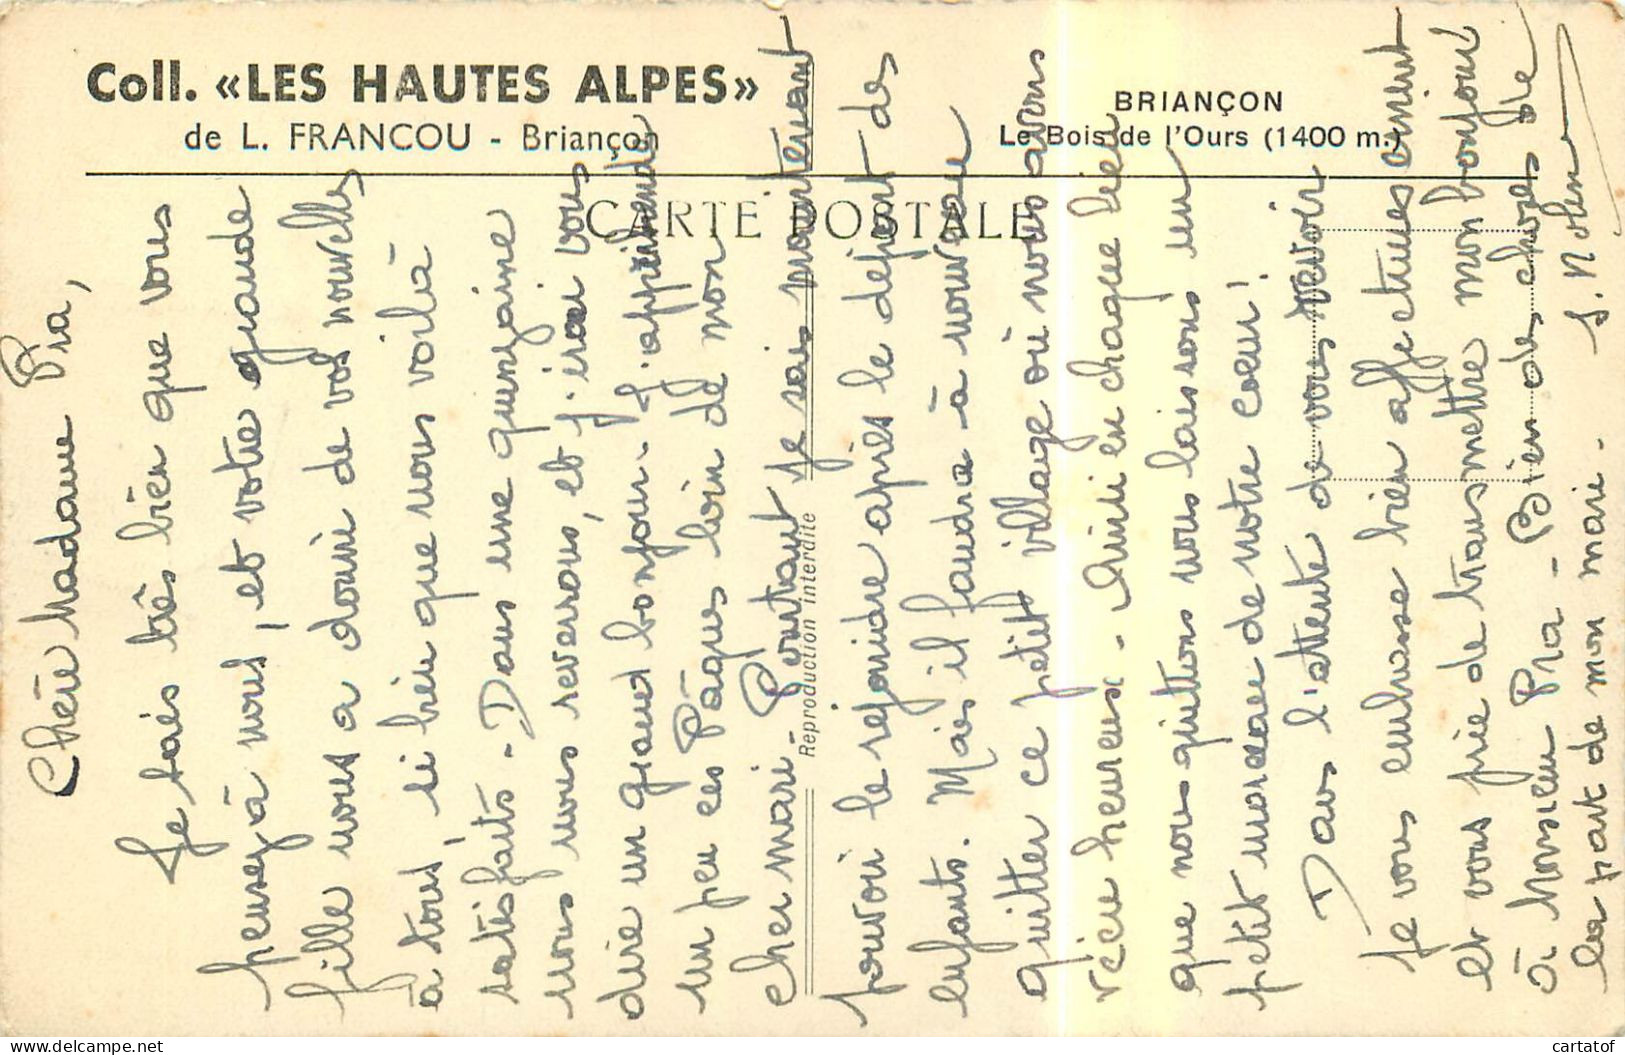 Coll. «LES HAUTES ALPES»
de L. FRANCOU - Briançon
BRIANÇON
Le Bois de l'Ours (1400 m.)
CARTE POSTALE
Reproduction interdite
Chère Madame Pra,
Je sais très bien que vous
pensez à nous, et votre grande
fille nous a donné de vos nouvelles
à tous, si bien que nous voilà
satisfaits. Dans une quinzaine
nous nous reverrons, et j'irai vous
dire un grand bonjour. J'appréhende
un peu ces Pâques loin de mon
cher mari. Pourtant je sais maintenant
pouvoir le rejoindre après le départ des
enfants. Mais il faudra à nouveau
quitter ce petit village où nous avons
vécu heureux. Ainsi en chaque lieu
que nous quittons nous laissons un
petit morceau de notre coeur!
Dans l'attente de vous revoir
Je vous embrasse bien affectueusement
et vous prie de transmettre mon bonjour
à Monsieur Pra - Bien des choses de
la part de mon mari.
cartatof
www.delcampe.net